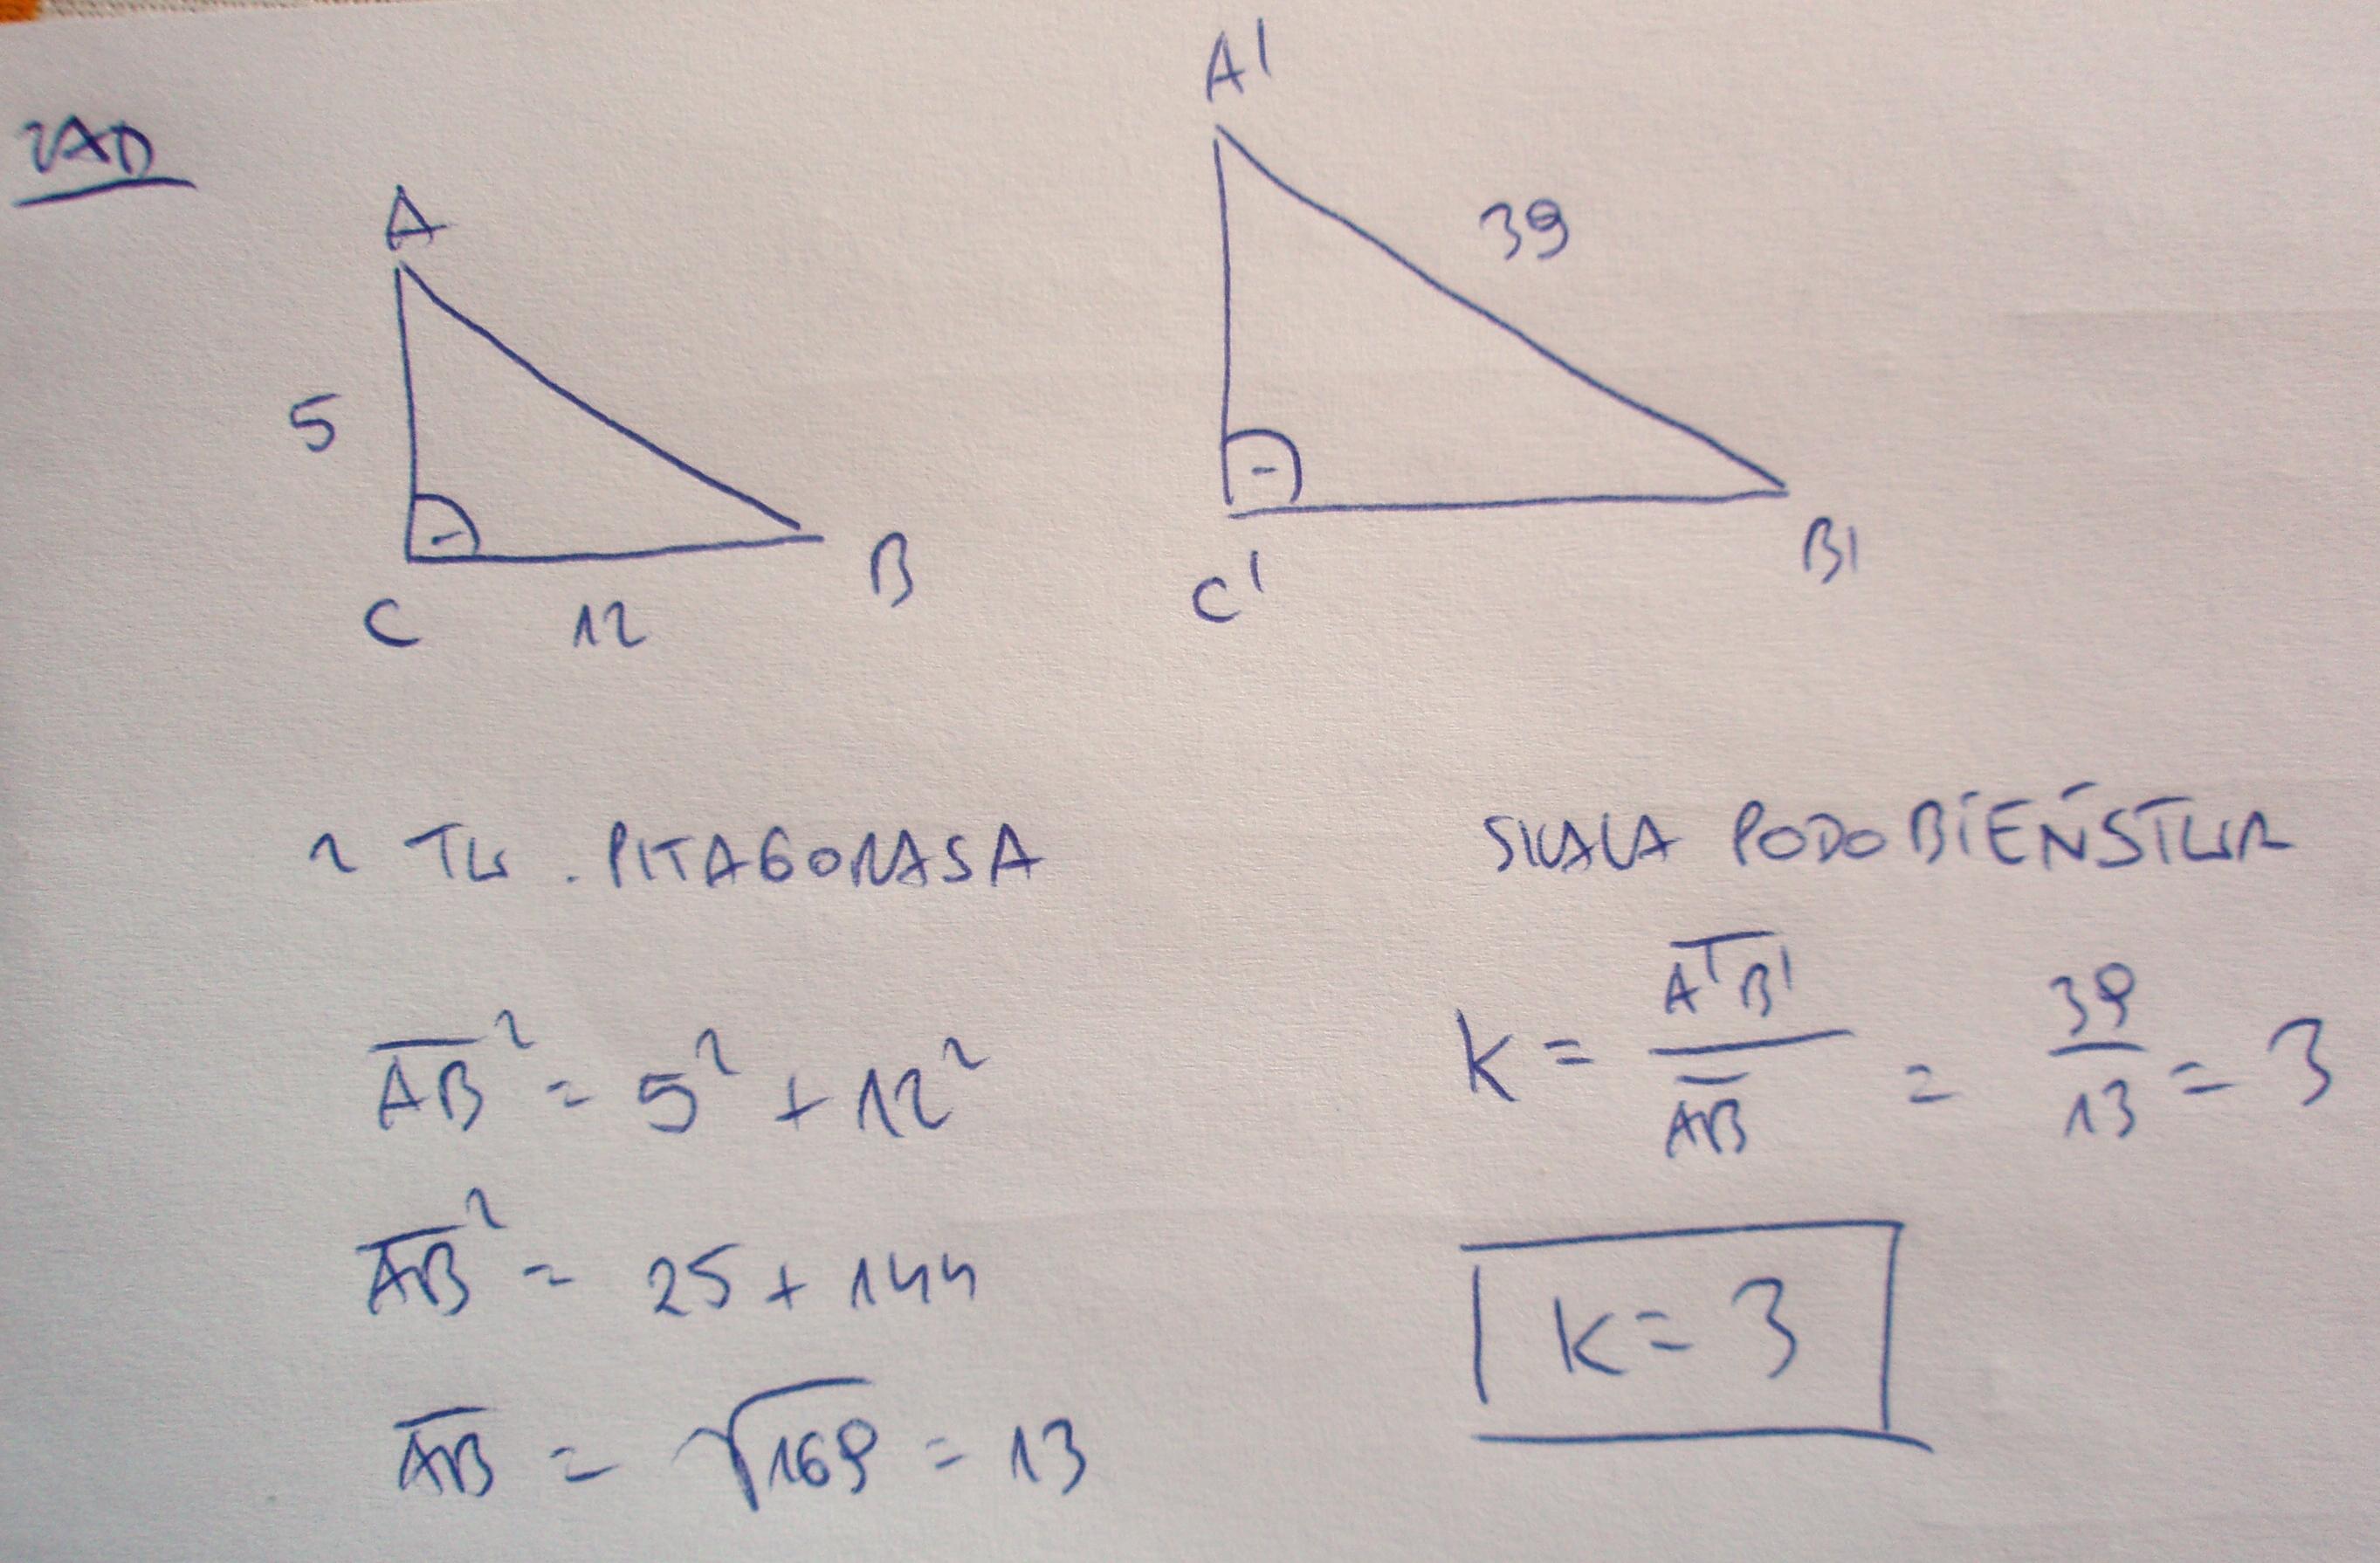 ZAD
A
5
C
12
B
A'
39
C'
B'
Z TW. PITAGORASA
AB² = 5² + 12²
AB² = 25 + 144
AB = √169 = 13
SKALA PODOBIEŃSTWA
K = A'B' / AB = 39 / 13 = 3
K = 3